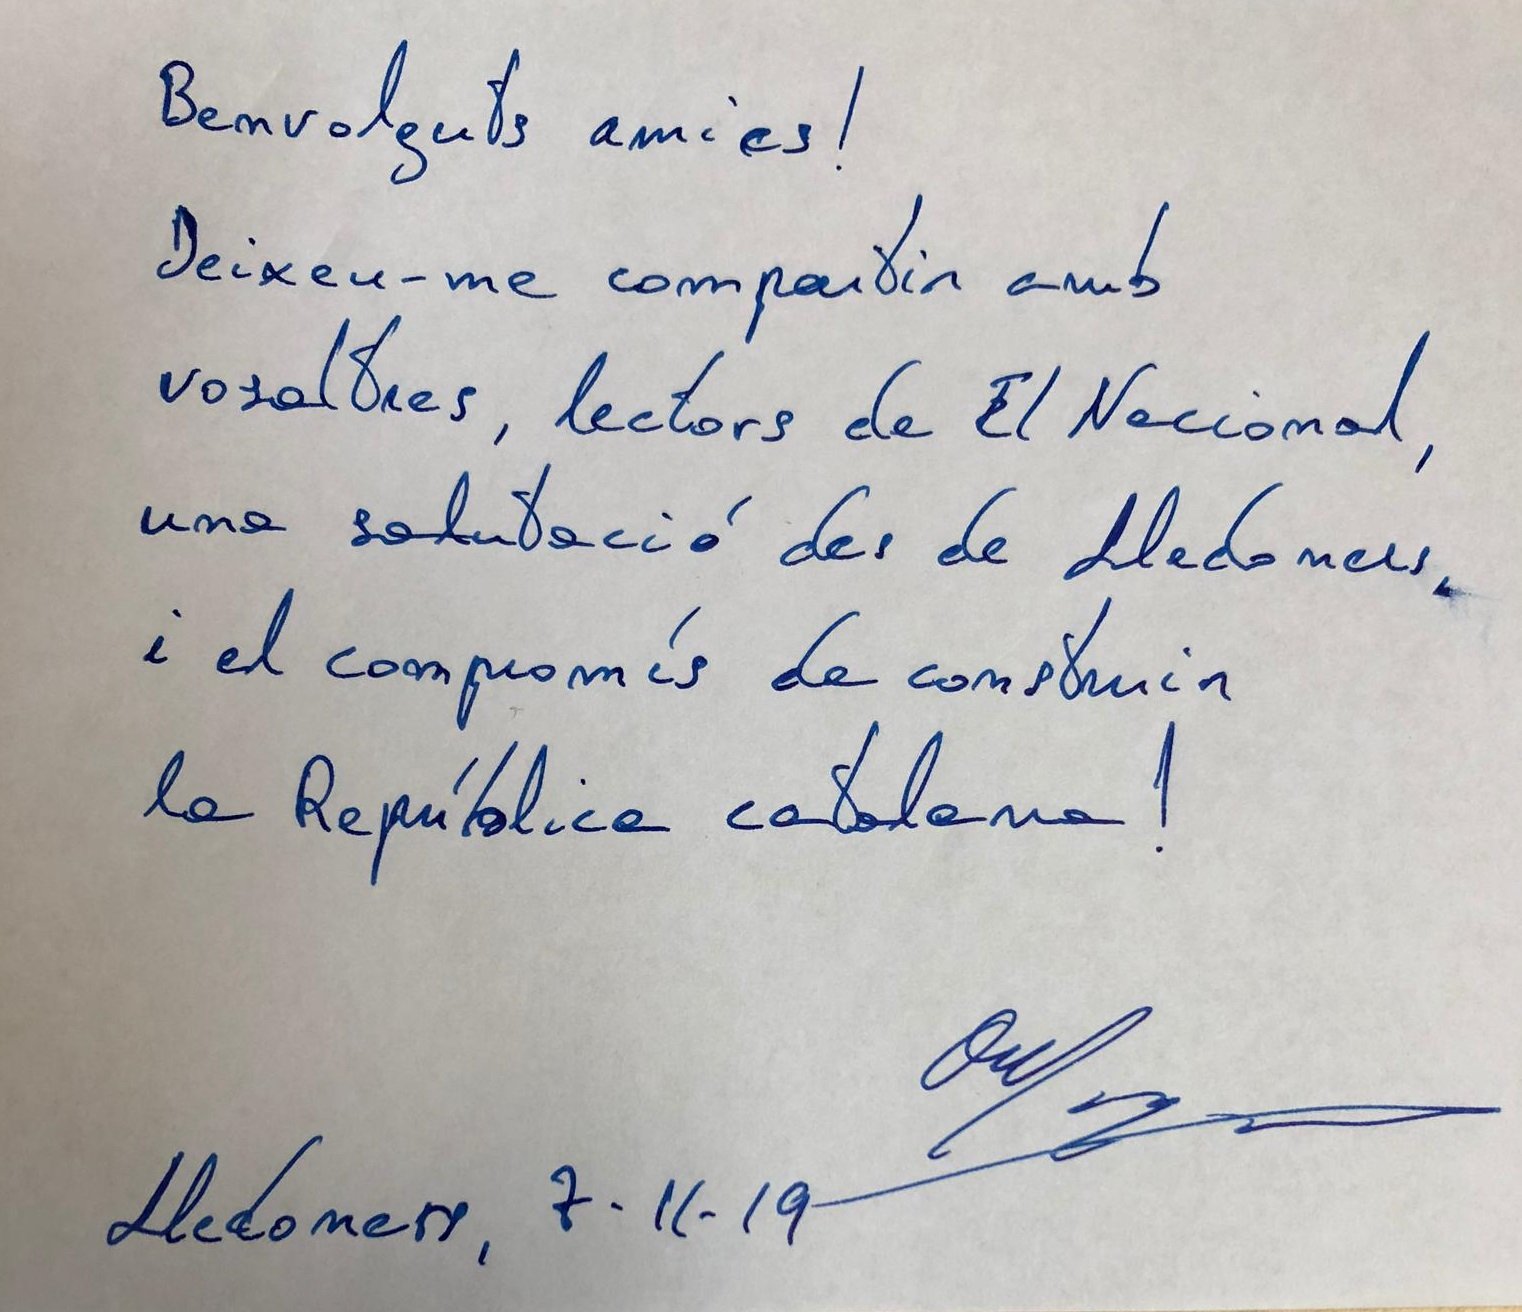 Benvolguts amics!
Deixeu-me compartir amb
vosaltres, lectors de El Nacional,
una salutació des de Lledoners,
i el compromís de construir
la República catalana!
Lledoners, 7-11-19